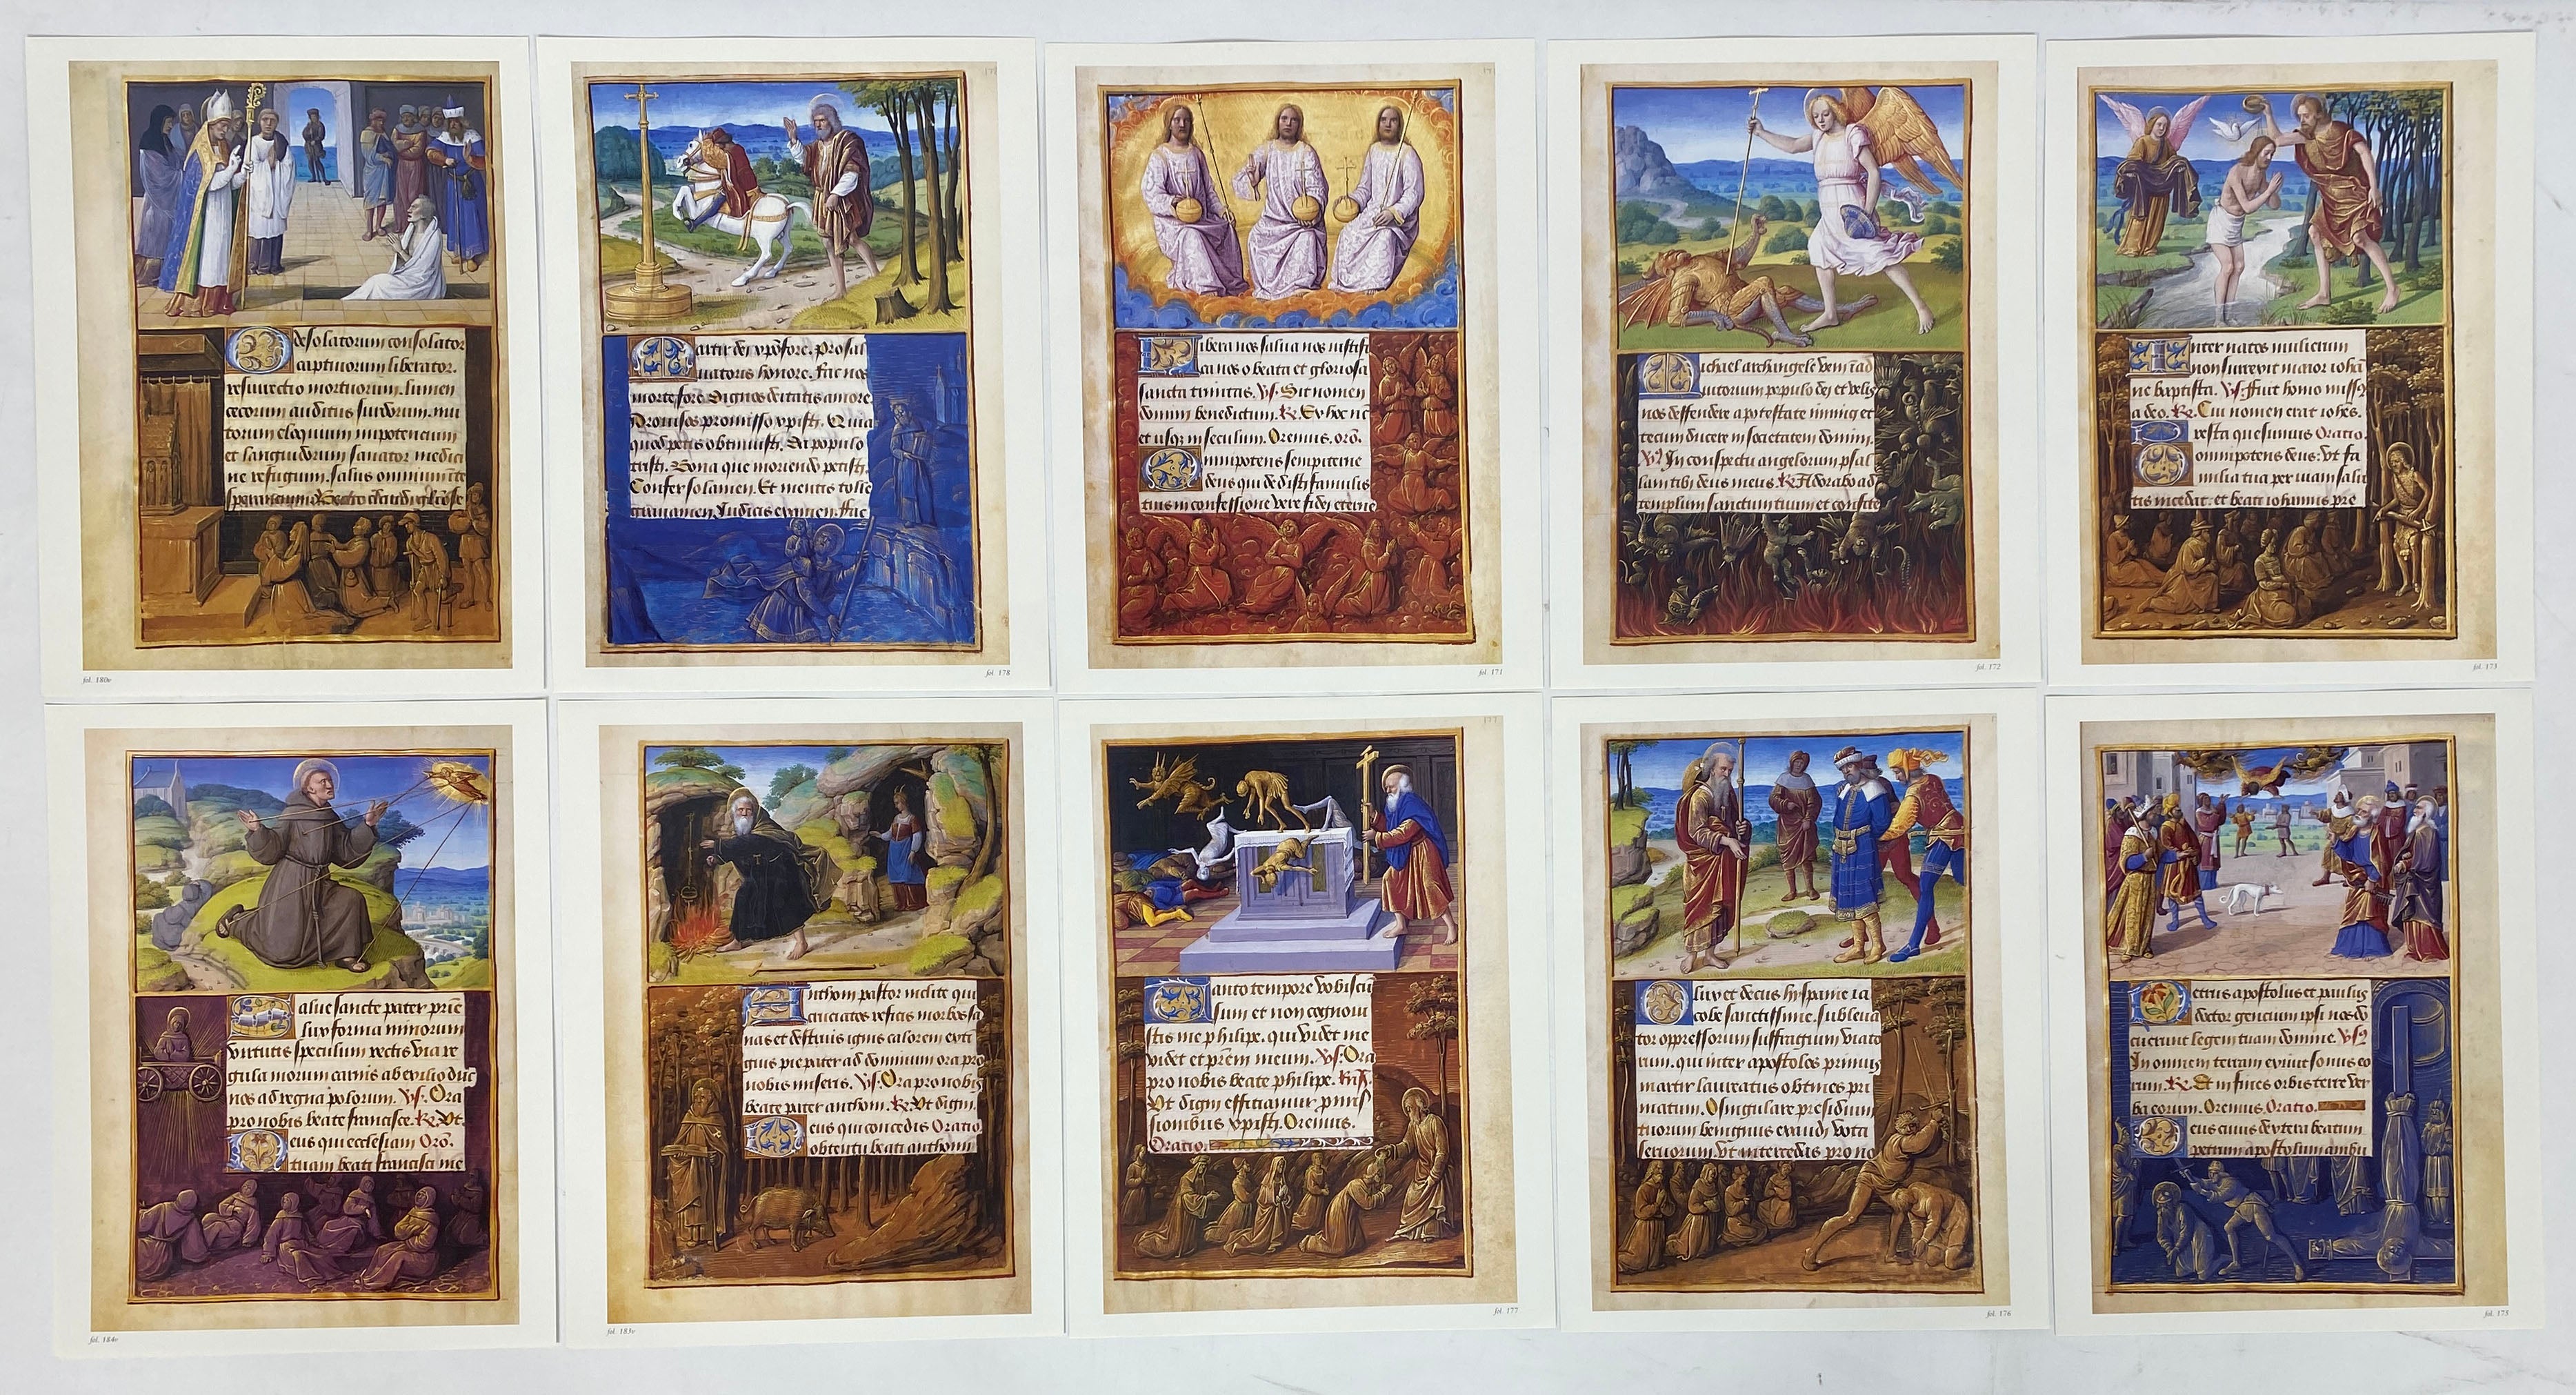 O desolatorum consolator
captiuorum liberator.
resurrectio mortuorum. lumen
cecorum auditus surdorum. mu
torum eloquium impotencium
et languidorum sanator medici
ne refugium. salus omnium in te
sperancium.
fol. 180v
Martir dei xpofore. pro sal
uatoris honore. Fac nos
mente fore. Dignos deitatis amore.
Promisso xpisti. Quia
quod petis obtinuisti. Da populo
tristi. Bona que moriendo petisti.
Confer solamen. Et mentis tolle
grauamen. Iudicis examen. Fac
fol. 178
Libera nos salua nos iustifi
ca nos o beata et gloriosa
sancta trinitas. Vs. Sit nomen
domini benedictum. Rx. Ex hoc nc
et usq3 in seculum. Oremus. oro.
Omnipotens sempiterne
deus qui dedisti famulis
tuis in confessione vere fidei eterne
171
fol. 171
Michael archangele veni in ad
iutorium populo dei et velis
nos deffendere a potestate inimici et
tecum ducere in societatem domini.
Vs. In conspectu angelorum psal
lam tibi deus meus. Rx. Adorabo ad
templum sanctum tuum et confite
fol. 172
Inter natos mulierum
non surrexit maior iohā
ne baptista. Vs. Fuit homo missus
a deo. Rx. Cui nomen erat iohes.
Presta quesumus Oratio.
omnipotens deus: vt fa
milia tua per viam salu
tis incedat. et beati iohannis pre
fol. 173
Salue sancte pater prie
lux forma minorum
virtutis speculum rectis via re
gula morum carnis ab exilio duc
nos ad regna polorum. Vs. Ora
pro nobis beate francisce. Rx. Vt.
Deus qui ecclesiam Oro.
tuam beati francisci me
fol. 184v
Anthoni pastor inclite qui
cruciatos reficis morbos sa
nas et destruis ignis calorem exti
guis pie pater ad dominum ora pro
nobis miseris. Vs. Ora pro nobis
beate pater anthoni. Rx. Vt digni.
Deus qui concedis Oratio
obtentu beati anthonii
fol. 183v
Tanto tempore vobiscū
sum et non cognoui
stis me philipe. qui videt me
videt et prēm meum. Vs. Ora
pro nobis beate philipe. Rx.
Vt digni efficiamur promis
sionibus xpisti. Oremus.
Oratio.
177
fol. 177
O lux et decus hyspanie ia
cobe sanctissime. subleua
tor oppressorum suffragium viato
rum. qui inter apostolos primus
martir laureatus obtines pri
matum. O singulare presidium
tuorum benignus exaudi vota
seruorum. Vt intercedas pro no
fol. 176
Petrus apostolus et paulus
doctor gencium ipsi nos do
cuerunt legem tuam domine. Vs.
In omnem terram exiuit sonus eo
rum. Rx. Et in fines orbis terre ver
ba eorum. Oremus. Oratio.
Deus cuius dextera beatum
petrum apostolum ambu
fol. 175